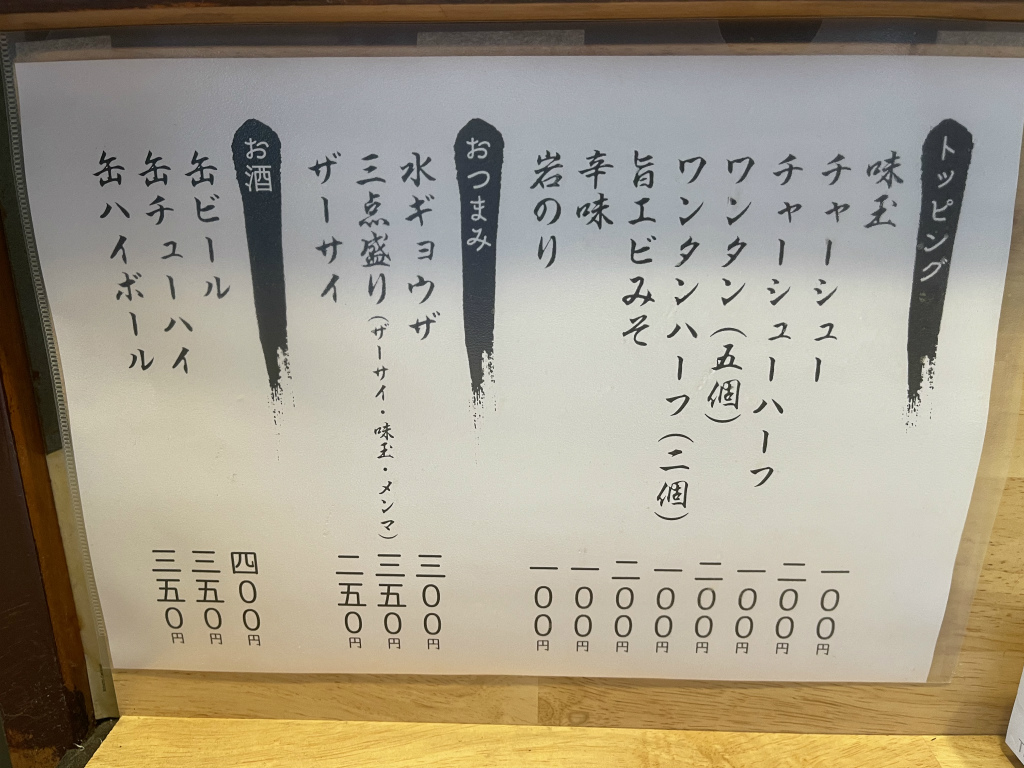 トッピング
味玉 一〇〇円
チャーシュー 二〇〇円
チャーシューハーフ 一〇〇円
ワンタン（五個） 二〇〇円
ワンタンハーフ（二個） 一〇〇円
旨エビみそ 二〇〇円
辛味 一〇〇円
岩のり 一〇〇円
おつまみ
水ギョウザ 三〇〇円
三点盛り（ザーサイ・味玉・メンマ） 三五〇円
ザーサイ 二五〇円
お酒
缶ビール 四〇〇円
缶チューハイ 三五〇円
缶ハイボール 三五〇円